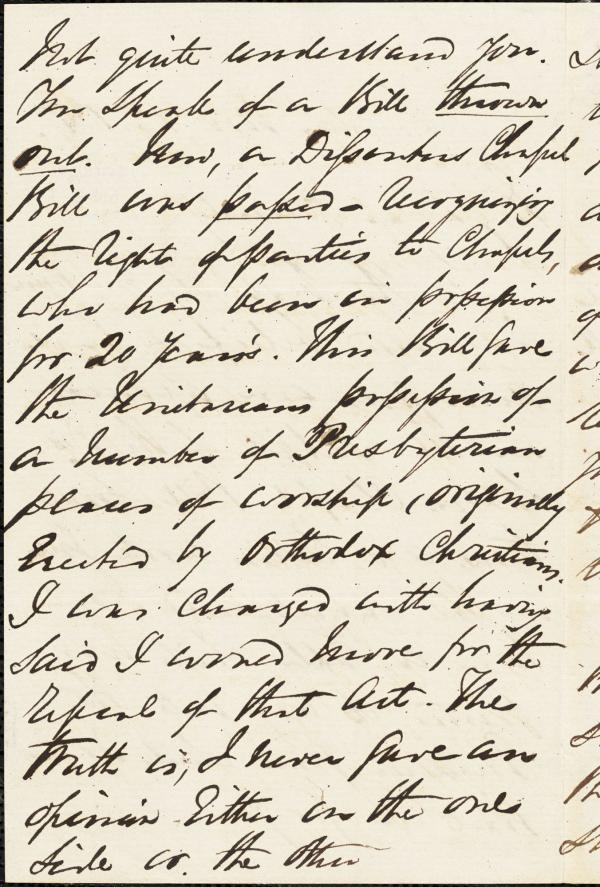 Not quite understand you.
You speak of a Bill thrown
out. Now, a Dissenters Chapel
Bill was passed - recognizing
the right of parties to Chapels,
who had been in possession
for 20 years. This Bill gave
the Unitarians possession of
a number of Presbyterian
places of worship, originally
erected by Orthodox Christians.
I was charged with having
said I would move for the
repeal of that Act. The
truth is, I never gave an
opinion either on the one
side or the other